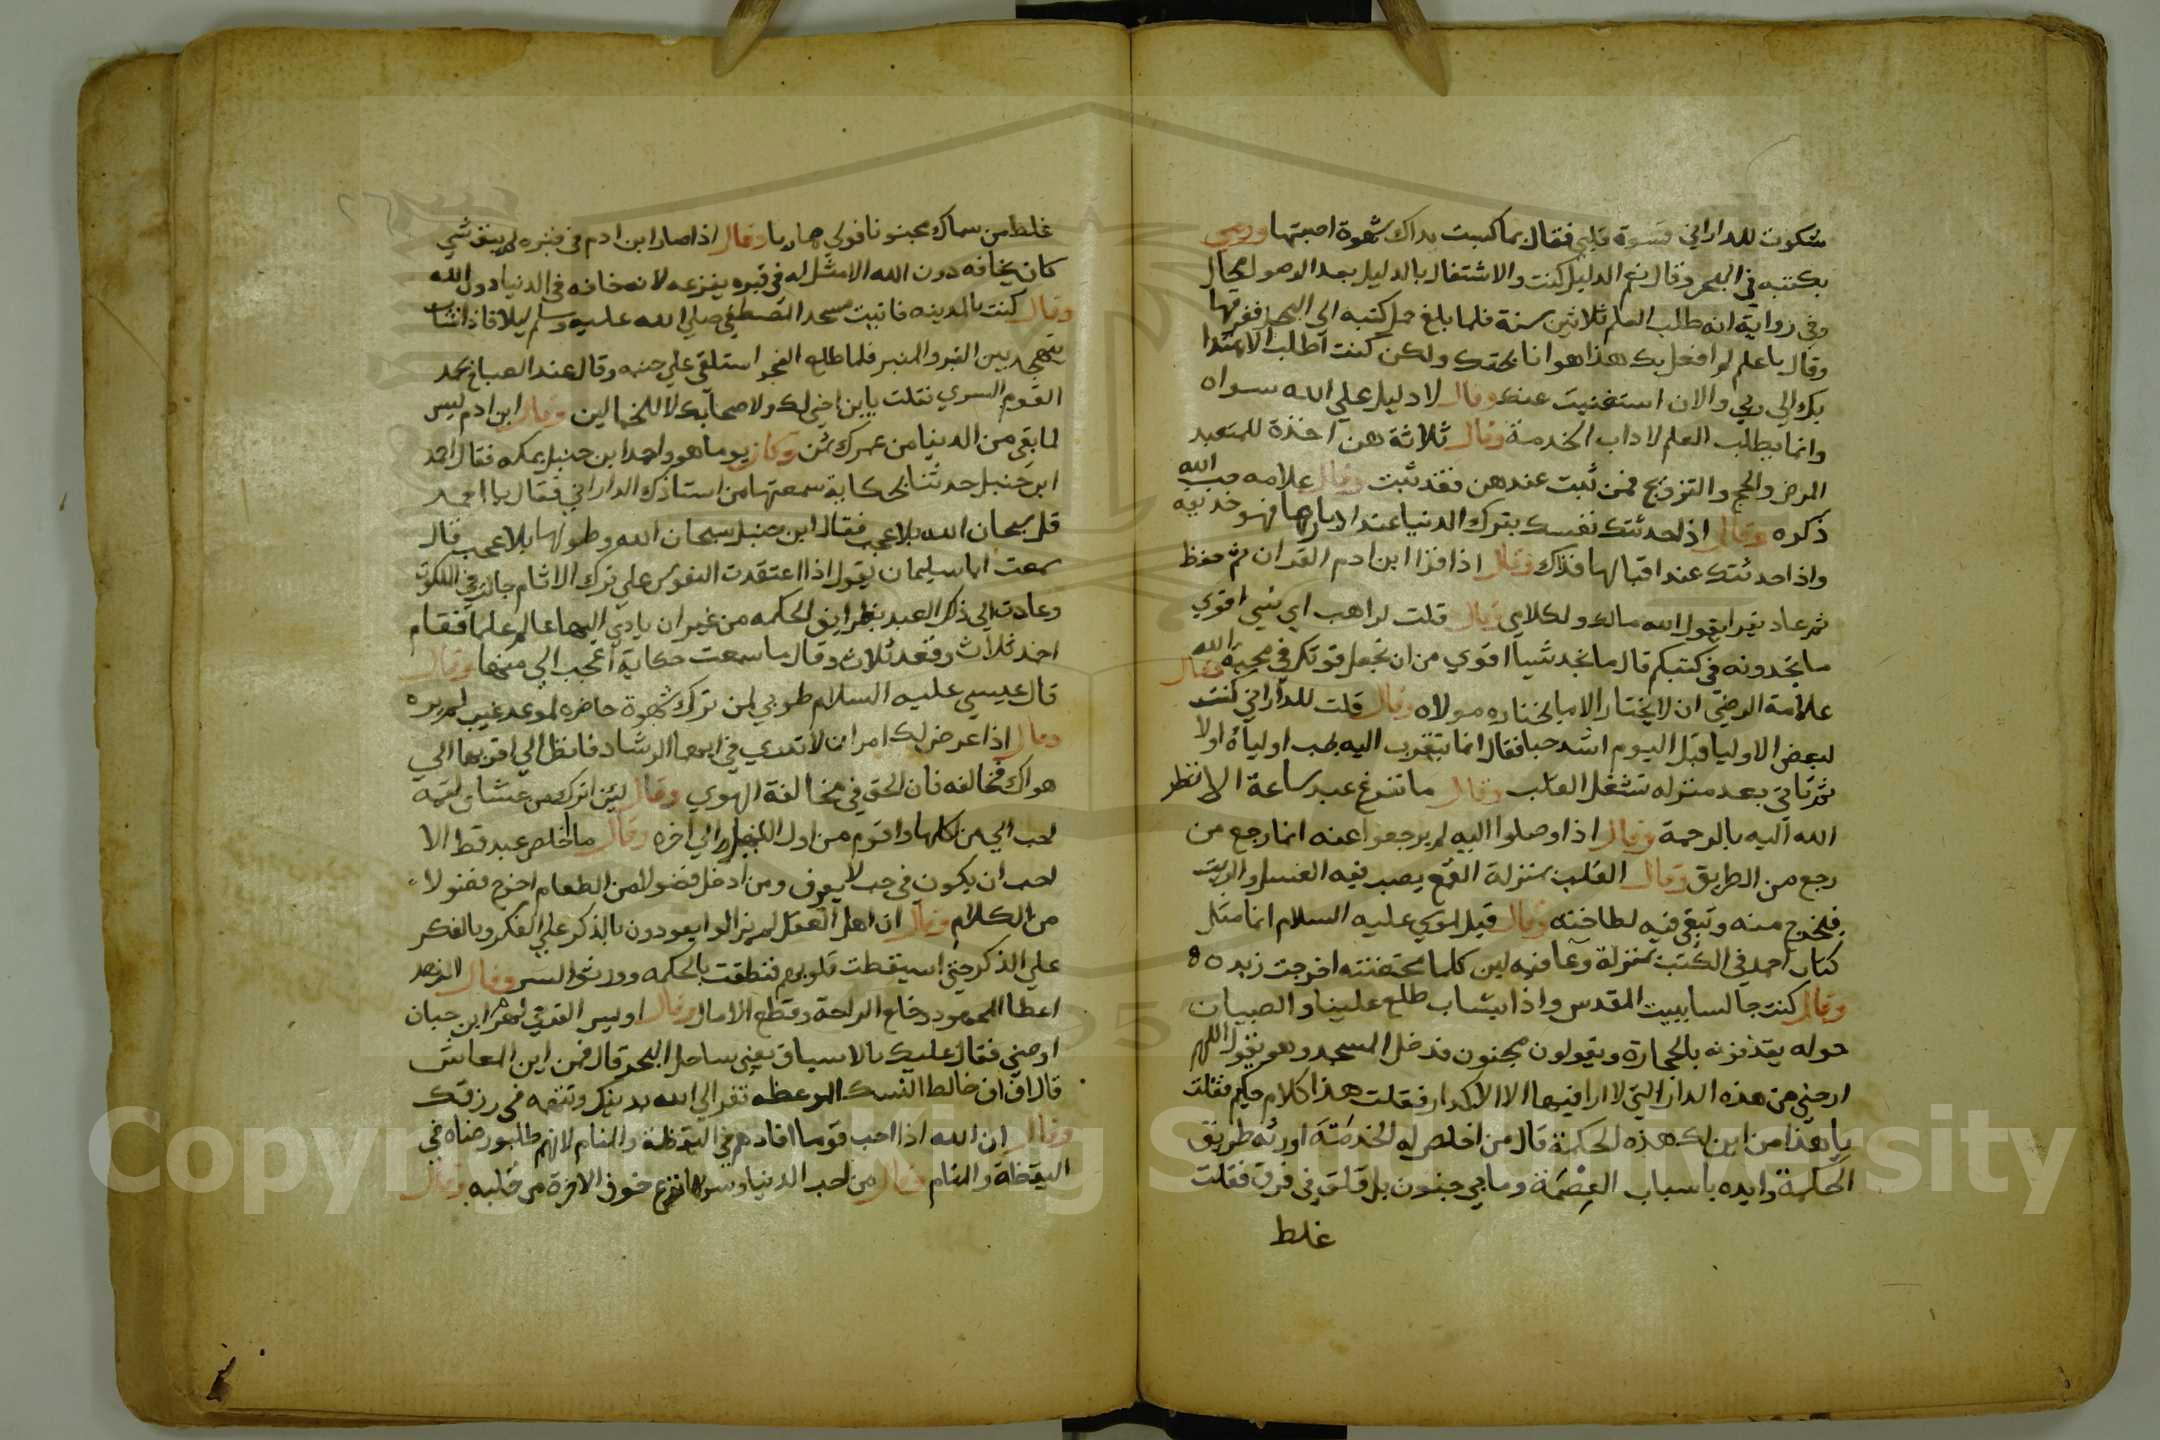 شكوت للداراني قسوة قلبي فقال بما كسبت يداك شهوة اصبتها ورمي
بكتبه في البحر وقال نعم الدليل كنت والاشتغال بالدليل بعد الوصول محال
وفي رواية انه طلب العلم ثلاثين سنة فلما بلغ حمل كتبه الي البحر فغرقها
وقال يا علم لم افعل بك هذا هوانا بحقك ولكن كنت اطلب الاهتدا
بك الي ربي والان استغنيت عنك وقال لا دليل علي الله سواه
وانما يطلب العلم لاداب الخدمة وقال ثلاثة هن اخذة للمتعبد
المرض والحج والتزويج فمن ثبت عندهن فقد ثبت وقال علامه حب الله
ذكره وقال اذا حدثتك نفسك بترك الدنيا عند ادبارها فهو خديعه
واذا حدثتك عند اقبالها فذاك وقال اذا قرا ابن ادم القران ثم خلط
ثم عاد يقرا يقول الله مالك ولكلامي وقال قلت لراهب اي شي اقوي
ما تجدونه في كتبكم قال ما نجد شيا اقوي من ان تجعل قوتك في محبة الله وقال
علامة الرضي ان لا يختار الا ما يختاره مولاه وقال قلت للداراني كنت
لبعض الاوليا قبل اليوم اشد حبا فقال انما يتقرب اليه بحب اولياه اولا
ثم تاتي بعد منزله تشغل القلب وقال ما تفرغ عبد ساعة الا نظر
الله اليه بالرحمة وقال اذا وصلوا اليه لم يرجعوا عنه انما رجع من
رجع من الطريق وقال القلب بمنزلة القمع يصب فيه العسل والزيت
فيخرج منه وتبقي فيه لطاخته وقال قيل لموسي عليه السلام انما مثل
كتاب احمد في الكتب بمنزلة وعا فيه لبن كلما مخضته اخرجت زبده
وقال كنت جالسا ببيت المقدس واذا بشاب طلع علينا والصبيان
حوله يقذفونه بالحجارة ويقولون مجنون فدخل المسجد وهو يقول اللهم
ارحني من هذه الدار التي لا ارا فيها الا الاكدار فقلت هذا كلام حكيم فقلت
يا هذا من اين لك هذه الحكمة قال من اخلص له الخدمة اورثه طريق
الحكمة وايده باسباب العصمة وما بي جنون بل قلق في فرق فقلت
غلط
غلط من سماك مجنونا فولي هاربا وقال اذا صار ابن ادم في قبره لم يبق شي
كان يخافه دون الله الا مثل له في قبره يفزعه لانه خافه في الدنيا دون الله
وقال كنت بالمدينه فاتيت مسجد المصطفي صلي الله عليه وسلم ليلا فاذا شاب
يتهجد بين القبر والمنبر فلما طلع الفجر استلقي علي جنبه وقال عند الصباح يحمد
القوم السري فقلت يا بن اخي لك ولاصحابك لا للجمالين وقال ابن ادم ليس
لما بقي من الدنيا من عمرك ثمن وكان يوما هو واحمد ابن حنبل بمكه فقال احمد
ابن حنبل حدثنا بحكاية سمعتها من استاذك الداراني فقال يا احمد
قل سبحان الله بلا عجب فقال ابن حنبل سبحان الله وطولها بلا عجب قال
سمعت ابا سليمان يقول اذا اعتقدت النفوس علي ترك الاثام جالت في الملكوت
وعادت الي ذكر العبد بطرايف الحكمه من غير ان يادي اليها عالم علما فقام
احمد ثلاث وقعد ثلاث وقال ما سمعت حكاية اعجب الي منها وقال
قال عيسي عليه السلام طوبي لمن ترك شهوة حاضره لموعد غيب لم يره
وقال اذا عرض لك امران لا تدري في ايهما الرشاد فانظر الي اقربهما الي
هواك فخالفه فان الحق في مخالفة الهوي وقال لين اترك من عشاي لقمه
احب الي من اكلها واقوم من اول الليل الي اخره وقال ما اخلص عبد قط الا
احب ان يكون في جب لا يعرف ومن ادخل فضولا من الطعام اخرج فضولا
من الكلام وقال ان اهل العقل لم يزالوا يعودون بالذكر علي الفكر وبالفكر
علي الذكر حتي استيقظت قلوبهم فنطقت بالحكمه وورثوا السر وقال الزهد
اعطا المجهود وخلع الراحة وقطع الامال وقال اويس القرني لهرم ابن حبان
اوصني فقال عليك بالاسياف يعني ساحل البحر قال فمن اين المعاش
قال اف اف خالط الشك الموعظه تفر الي الله بدينك وتتهمه في رزقك
وقال ان الله اذا احب قوما افادهم في اليقظة والمنام لانهم طلبوا رضاه في
اليقظة والمنام وقال من احب الدنيا وسرّبها نزع خوف الاخرة من قلبه وقال
Copyright © King Saud University